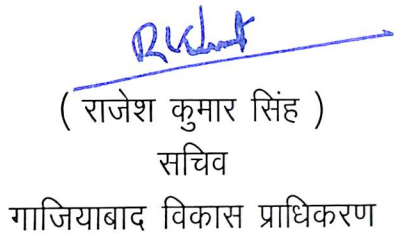 ( राजेश कुमार सिंह )
सचिव
गाजियाबाद विकास प्राधिकरण